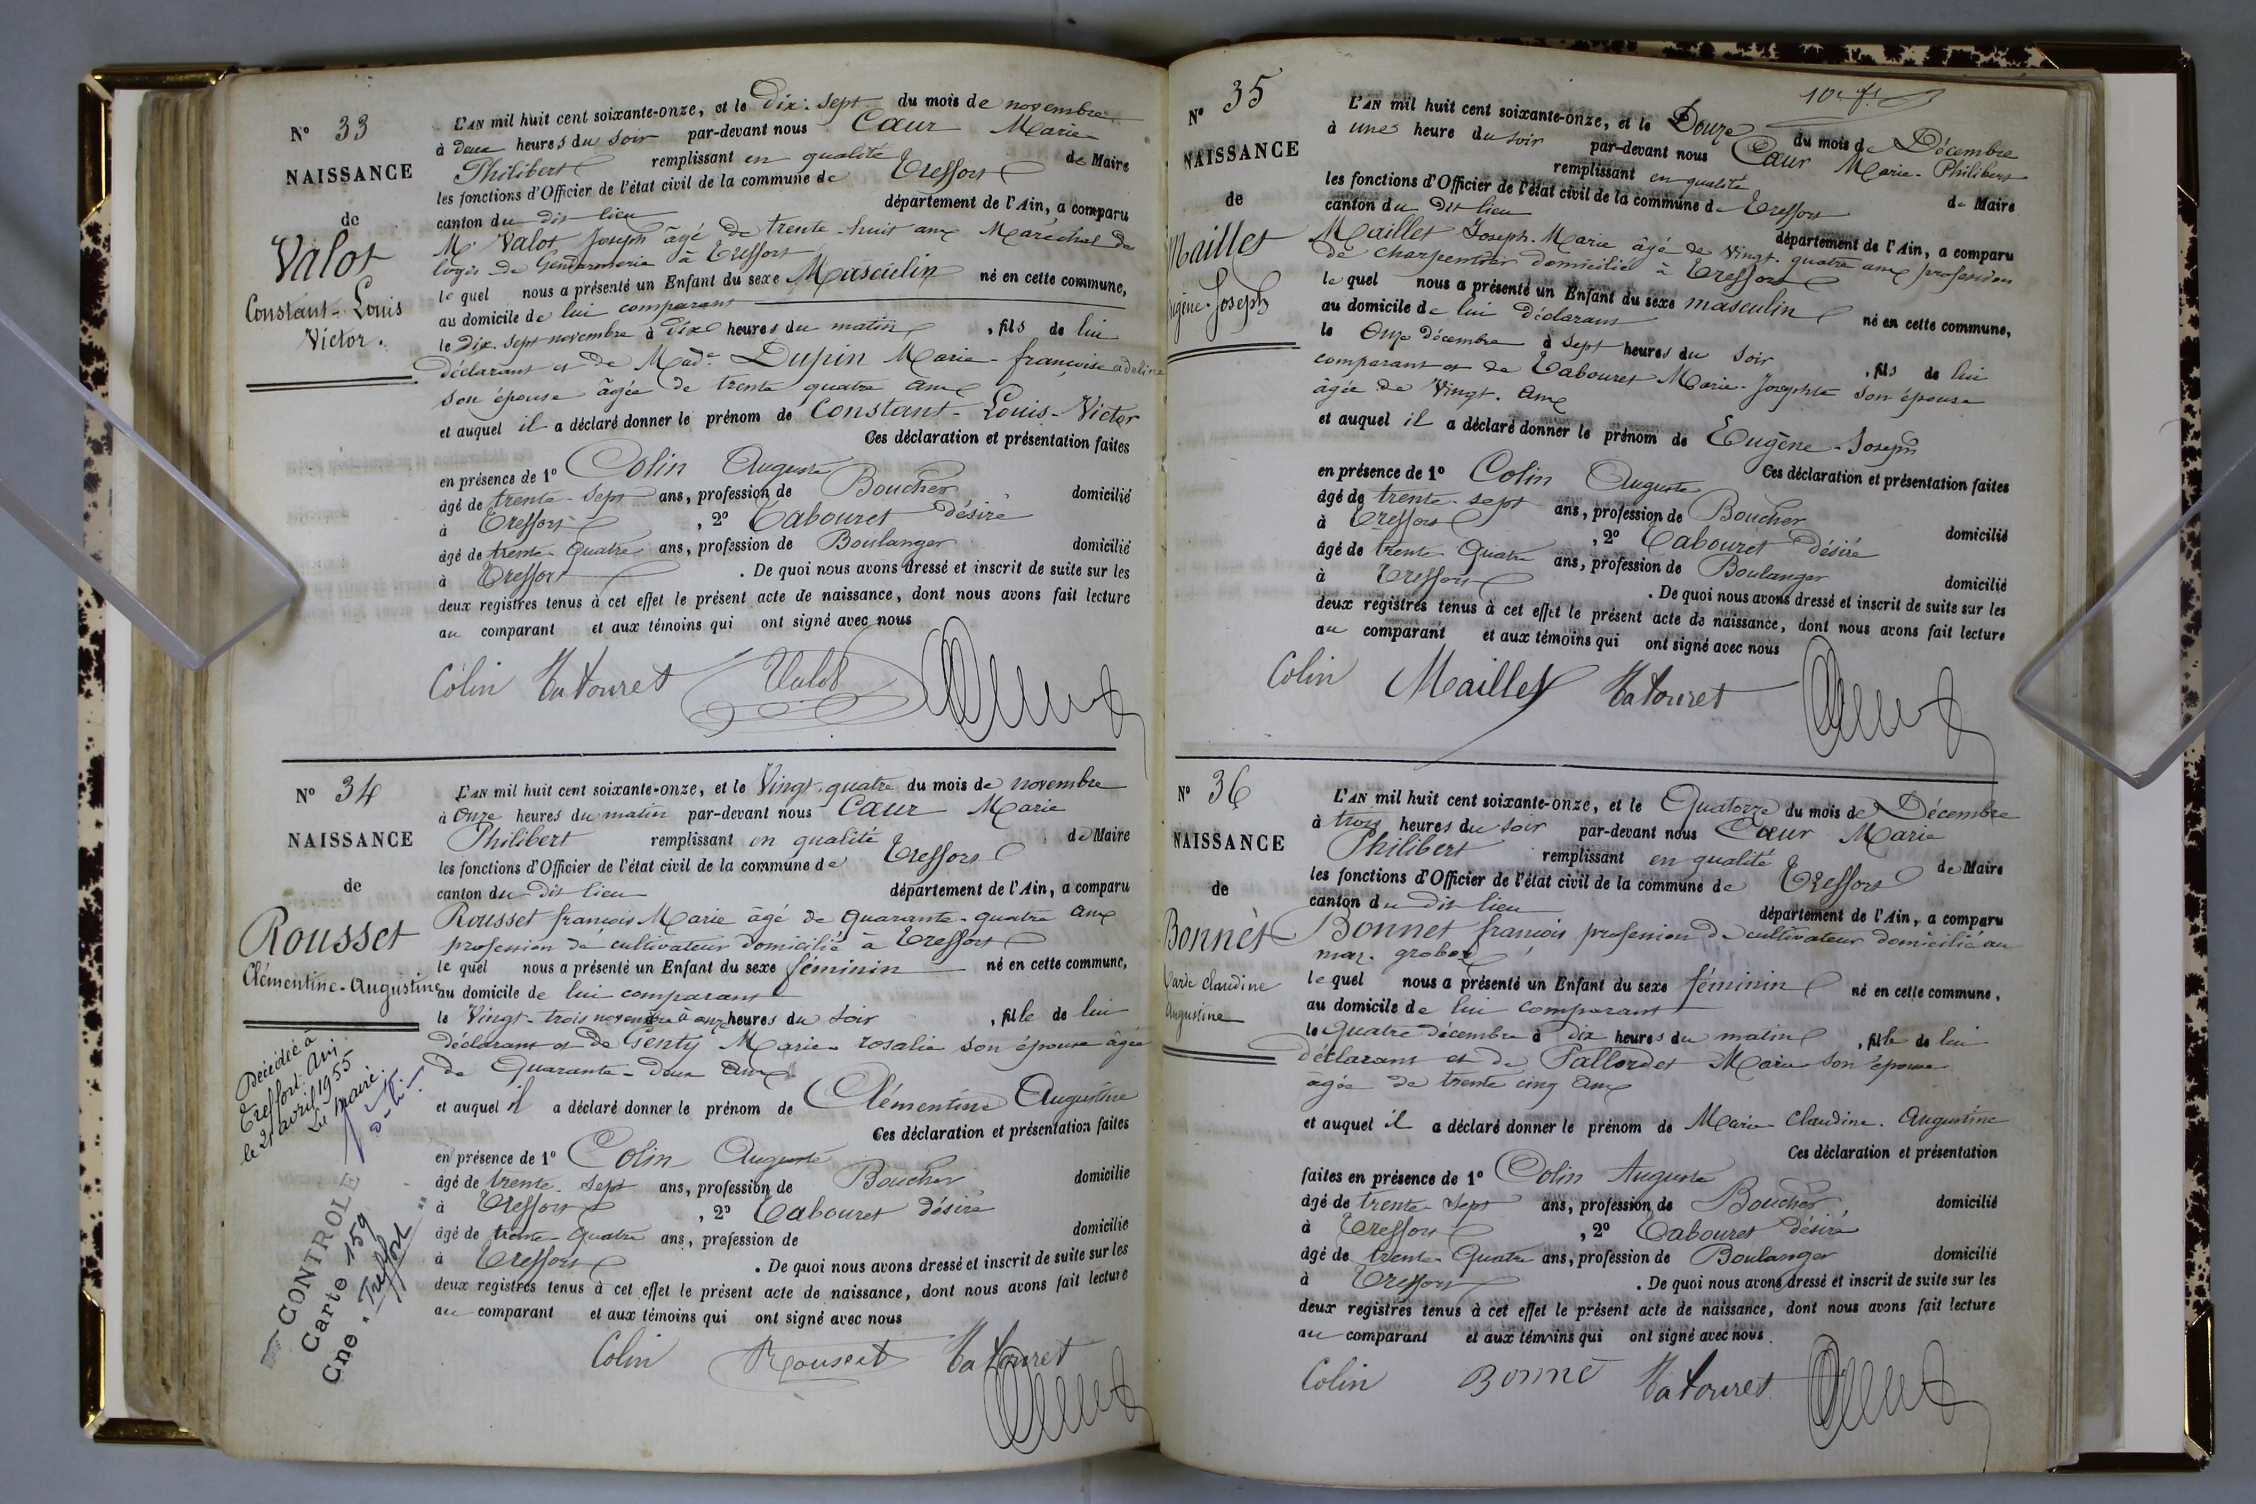 N° 33
NAISSANCE
de
Valot
Constant-Louis
Victor.
L'AN mil huit cent soixante-onze, et le Dix-sept du mois de novembre
à deux heures du soir par-devant nous Cœur Marie
Philibert remplissant en qualité de Maire
les fonctions d'Officier de l'état civil de la commune de Treffort
canton du dit lieu département de l'Ain, a comparu
Mr Valot Joseph âgé de trente-huit ans Maréchal de
logis de Gendarmerie à Treffort
le quel nous a présenté un Enfant du sexe Masculin né en cette commune,
au domicile de lui comparant
le Dix-sept novembre à dix heures du matin, fils de lui
déclarant et de Made Dupin Marie-françoise adeline
son épouse âgée de trente quatre ans
et auquel il a déclaré donner le prénom de Constant-Louis-Victor
Ces déclaration et présentation faites
en présence de 1° Colin Auguste
âgé de trente-sept ans, profession de Boucher domicilié
à Treffort, 2° Tabouret désiré
âgé de trente-Quatre ans, profession de Boulanger domicilié
à Treffort. De quoi nous avons dressé et inscrit de suite sur les
deux registres tenus à cet effet le présent acte de naissance, dont nous avons fait lecture
au comparant et aux témoins qui ont signé avec nous
Colin Tabouret Valot
N° 34
NAISSANCE
de
Rousset
Clémentine-Augustine
Décédée à
Treffort. Ain
le 21 avril 1955
Le Maire.
CONTROLE
Carte 159
Cne "Treffort"
L'AN mil huit cent soixante-onze, et le Vingt-quatre du mois de novembre
à Onze heures du matin par-devant nous Cœur Marie
Philibert remplissant en qualité de Maire
les fonctions d'Officier de l'état civil de la commune de Treffort
canton du dit lieu département de l'Ain, a comparu
Rousset françois-Marie âgé de Quarante-quatre ans
profession de cultivateur domicilié à Treffort
le quel nous a présenté un Enfant du sexe féminin né en cette commune,
au domicile de lui comparant
le Vingt-trois novembre à onze heures du soir, fille de lui
déclarant et de Genty Marie-rosalie son épouse âgée
de Quarante-deux ans
et auquel il a déclaré donner le prénom de Clémentine Augustine
Ces déclaration et présentation faites
en présence de 1° Colin Auguste
âgé de trente-sept ans, profession de Boucher domicilié
à Treffort, 2° Tabouret désiré
âgé de trente-Quatre ans, profession de domicilié
à Treffort. De quoi nous avons dressé et inscrit de suite sur les
deux registres tenus à cet effet le présent acte de naissance, dont nous avons fait lecture
au comparant et aux témoins qui ont signé avec nous
Colin Rousset Tabouret
N° 35
NAISSANCE
de
Maillet
Eugène-Joseph
L'AN mil huit cent soixante-onze, et le Douze du mois de Décembre
à une heure du soir par-devant nous Cœur Marie-Philibert
remplissant en qualité de Maire
les fonctions d'Officier de l'état civil de la commune de Treffort
canton du dit lieu département de l'Ain, a comparu
Maillet Joseph-Marie âgé de Vingt-quatre ans profession
de charpentier domicilié à Treffort
le quel nous a présenté un Enfant du sexe masculin né en cette commune,
au domicile de lui déclarant
le Onze décembre à Sept heures du soir, fils de lui
comparant et de Tabouret Marie-Josephte son épouse
âgée de Vingt ans
et auquel il a déclaré donner le prénom de Eugène-Joseph
Ces déclaration et présentation faites
en présence de 1° Colin Auguste
âgé de trente-sept ans, profession de Boucher domicilié
à Treffort, 2° Tabouret désiré
âgé de trente Quatre ans, profession de Boulanger domicilié
à Treffort. De quoi nous avons dressé et inscrit de suite sur les
deux registres tenus à cet effet le présent acte de naissance, dont nous avons fait lecture
au comparant et aux témoins qui ont signé avec nous
Colin Maillet Tabouret
N° 36
NAISSANCE
de
Bonnet
Marie claudine
Augustine
L'AN mil huit cent soixante-onze, et le Quatorze du mois de Décembre
à trois heures du soir par-devant nous Cœur Marie
Philibert remplissant en qualité de Maire
les fonctions d'Officier de l'état civil de la commune de Treffort
canton du dit lieu département de l'Ain, a comparu
Bonnet françois profession de cultivateur domicilié au
le quel nous a présenté un Enfant du sexe féminin né en cette commune,
au domicile de lui comparant
le quatre décembre à dix heures du matin, fille de lui
déclarant et de Marie son épouse
âgée de trente cinq ans
et auquel il a déclaré donner le prénom de Marie Claudine. Augustine
Ces déclaration et présentation
faites en présence de 1° Colin Auguste
âgé de trente-sept ans, profession de Boucher domicilié
à Treffort, 2° Tabouret désiré
âgé de trente-Quatre ans, profession de Boulanger domicilié
à Treffort. De quoi nous avons dressé et inscrit de suite sur les
deux registres tenus à cet effet le présent acte de naissance, dont nous avons fait lecture
au comparant et aux témoins qui ont signé avec nous.
Colin Bonne Tabouret